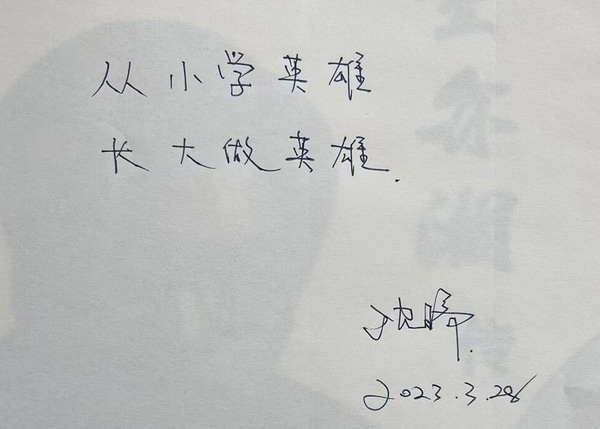 从小学英雄
长大做英雄.
2023.3.28